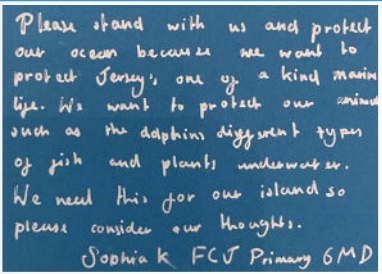 Please stand with us and protect
our ocean because we want to
protect Jersey's one of a kind marine
life. We want to protect our animals
such as the dolphins diggerent types
of fish and plants underwater.
We need this for our island so
please consider our thoughts.
Sophia K FCJ Primary 6MD